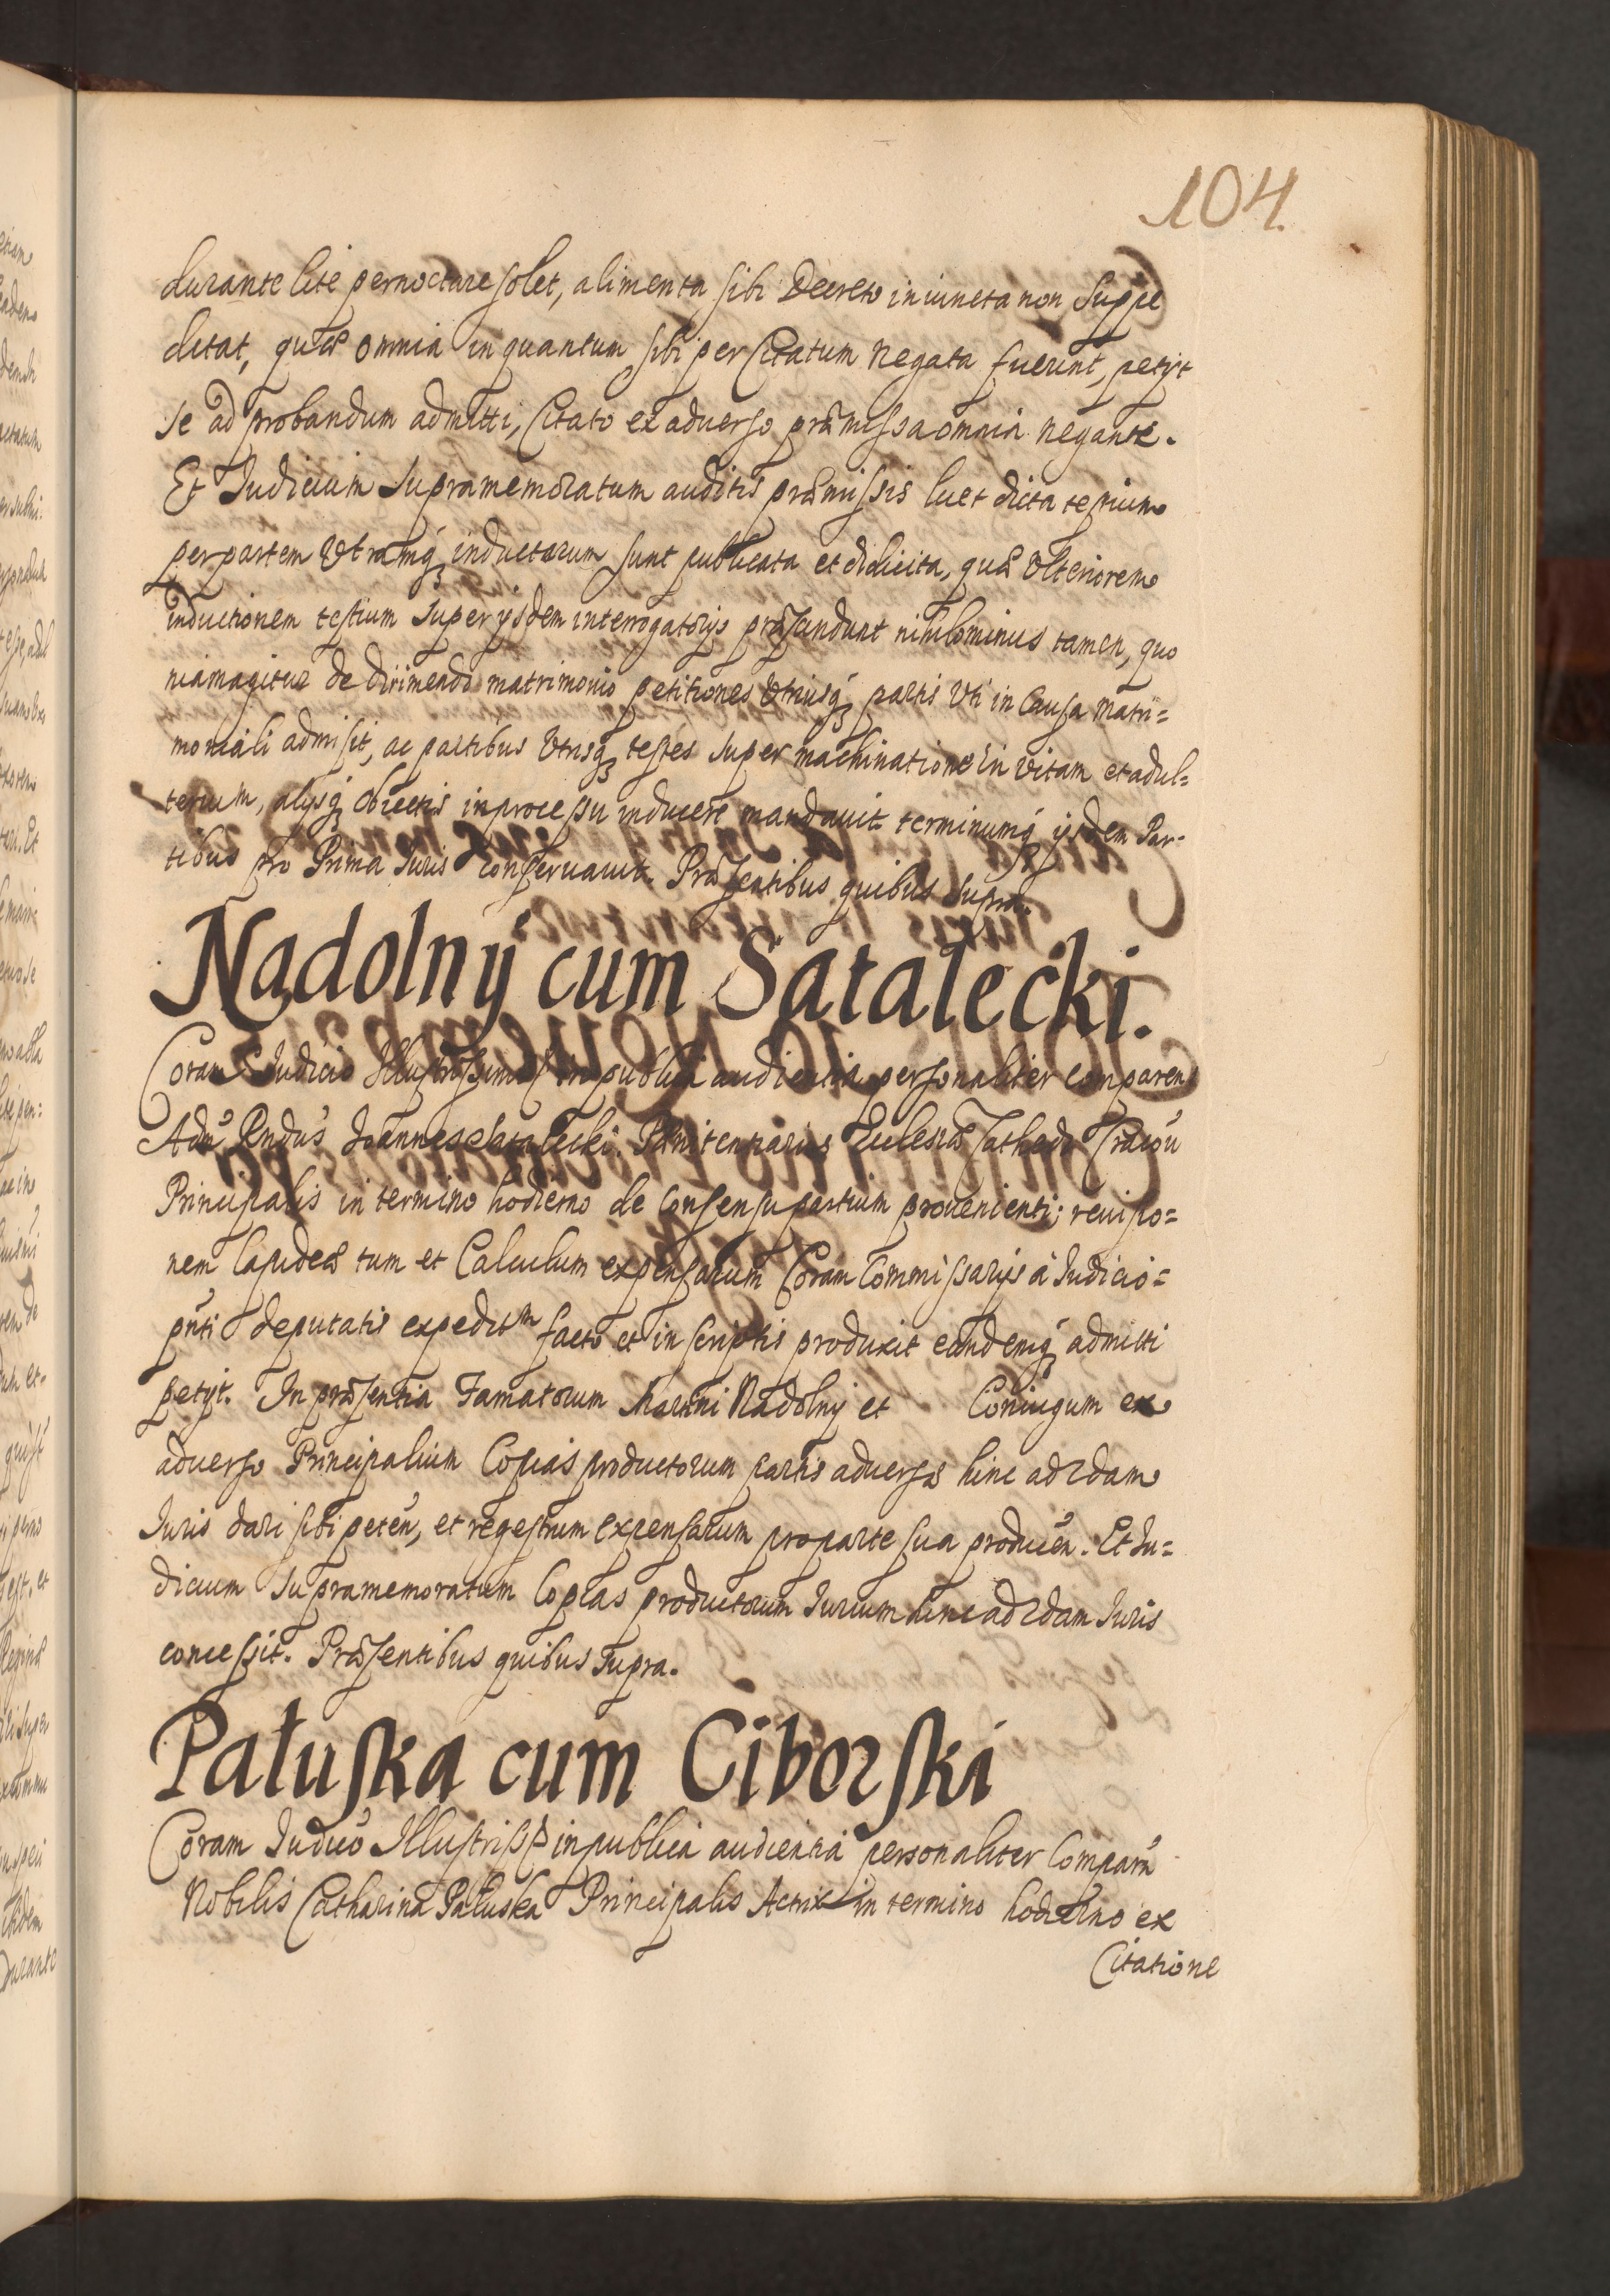 104.
durante lite pernoctare solet, alimenta sibi Decreto iniuncta non Suppe
ditat, quæ omnia inquantum sibi per Citatum negata fuerint, petijt
se ad probandum admitti, Citato ex aduerso præmissa omnia negante.
Et Iudicium Supramemoratum auditis præmissis licet dicta testium
per partem Vtramq; inductorum sunt publicata et didicita, quæ Vlteriorem
inductionem testium super ijsdem interrogatorijs præscindunt nihilominus tamen, quo
niam agitur de dirimendo matrimonio petitiones Vtriusq; partis Vti in Causa Matri=
moniali admisit, ac partibus Vtrisq; testes super machinatione in Vitam et adul=
terium, alijsq; obiectis in processu inducere mandauit terminumq; ijsdem Par=
tibus pro Prima Iuris conseruauit. Præsentibus quibus supra.
Nadolny cum Satalecki.
Coram Iudicio Illustrissimi in publica audientia personaliter comparen
Adm̃ Rndus Joannes Satalecki Pænitentiarius Ecclesiæ Cathedr Cracou
Principalis in termino hodierno de Consensu partium prouenienti; reuisio=
nem lapideæ tum et Calculum expensarum Coram Commissarijs à Iudicio=
pñti deputatis expeditm facto et in scriptis produxit eandemq; admitti
petijt. In præsentia Famatorum Martini Nadolny et Coniugum ex
aduerso Principalium Copias productorum partis aduersæ hinc ad 2dam
Iuris dari sibi peteñ, et regestrum expensarum pro parte sua produceñ. Et Iu=
dicium Supramemoratum Copias productorum Iurium hinc ad 2dam Iuris
concessit. Præsentibus quibus supra.
Pałuska cum Ciborski
Coram Iudicio Illustriss in publica audientia personaliter Comparñ
Nobilis Catharina Pałuska Principalis Actrix in termino hodierno ex
Citatione